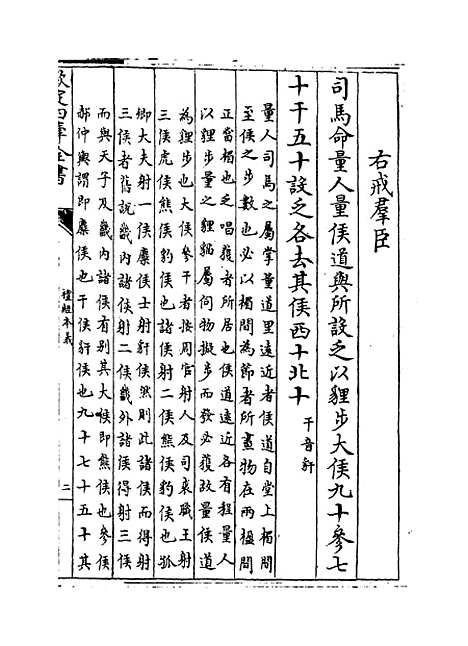 右戒羣臣
司馬命量人量侯道與所設乏以貍步大侯九十參七
十干五十設乏各去其侯西十北十
干音豻
量人司馬之屬掌量道里遠近者侯道自堂上楅間
至侯之步數也必以楅間為節者所畫物在兩楹間
正當楅也乏唱獲者所居也侯道遠近各有程量人
以貍步量之貍貓屬伺物擬步而發必獲故量侯道
為貍步也大侯參干者按周官射人及司裘職王射
三侯虎侯熊侯豹侯也諸侯射二侯熊侯豹侯也孤
卿大夫射一侯麋侯士射豻侯然則此諸侯而得射
三侯者舊說畿內諸侯射二侯畿外諸侯得射三侯
而與天子及畿內諸侯有别其大侯即熊侯也參侯
郝仲輿謂即麋侯也干侯豻侯也九十七十五十其
欽定四庫全書
禮經本義
二